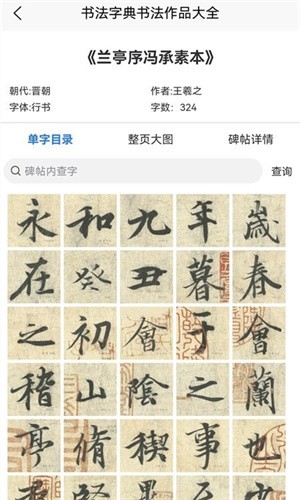 书法字典书法作品大全
《兰亭序冯承素本》
朝代:晋朝 作者:王羲之
字体:行书 字数：324
单字目录 整页大图 碑帖详情
碑帖内查字 查询
永 和 九 年 歲
在 癸 丑 暮 春
之 初 會 于 會
稽 山 陰 之 蘭
亭 脩 禊 事 也
羣 賢 畢 至 少